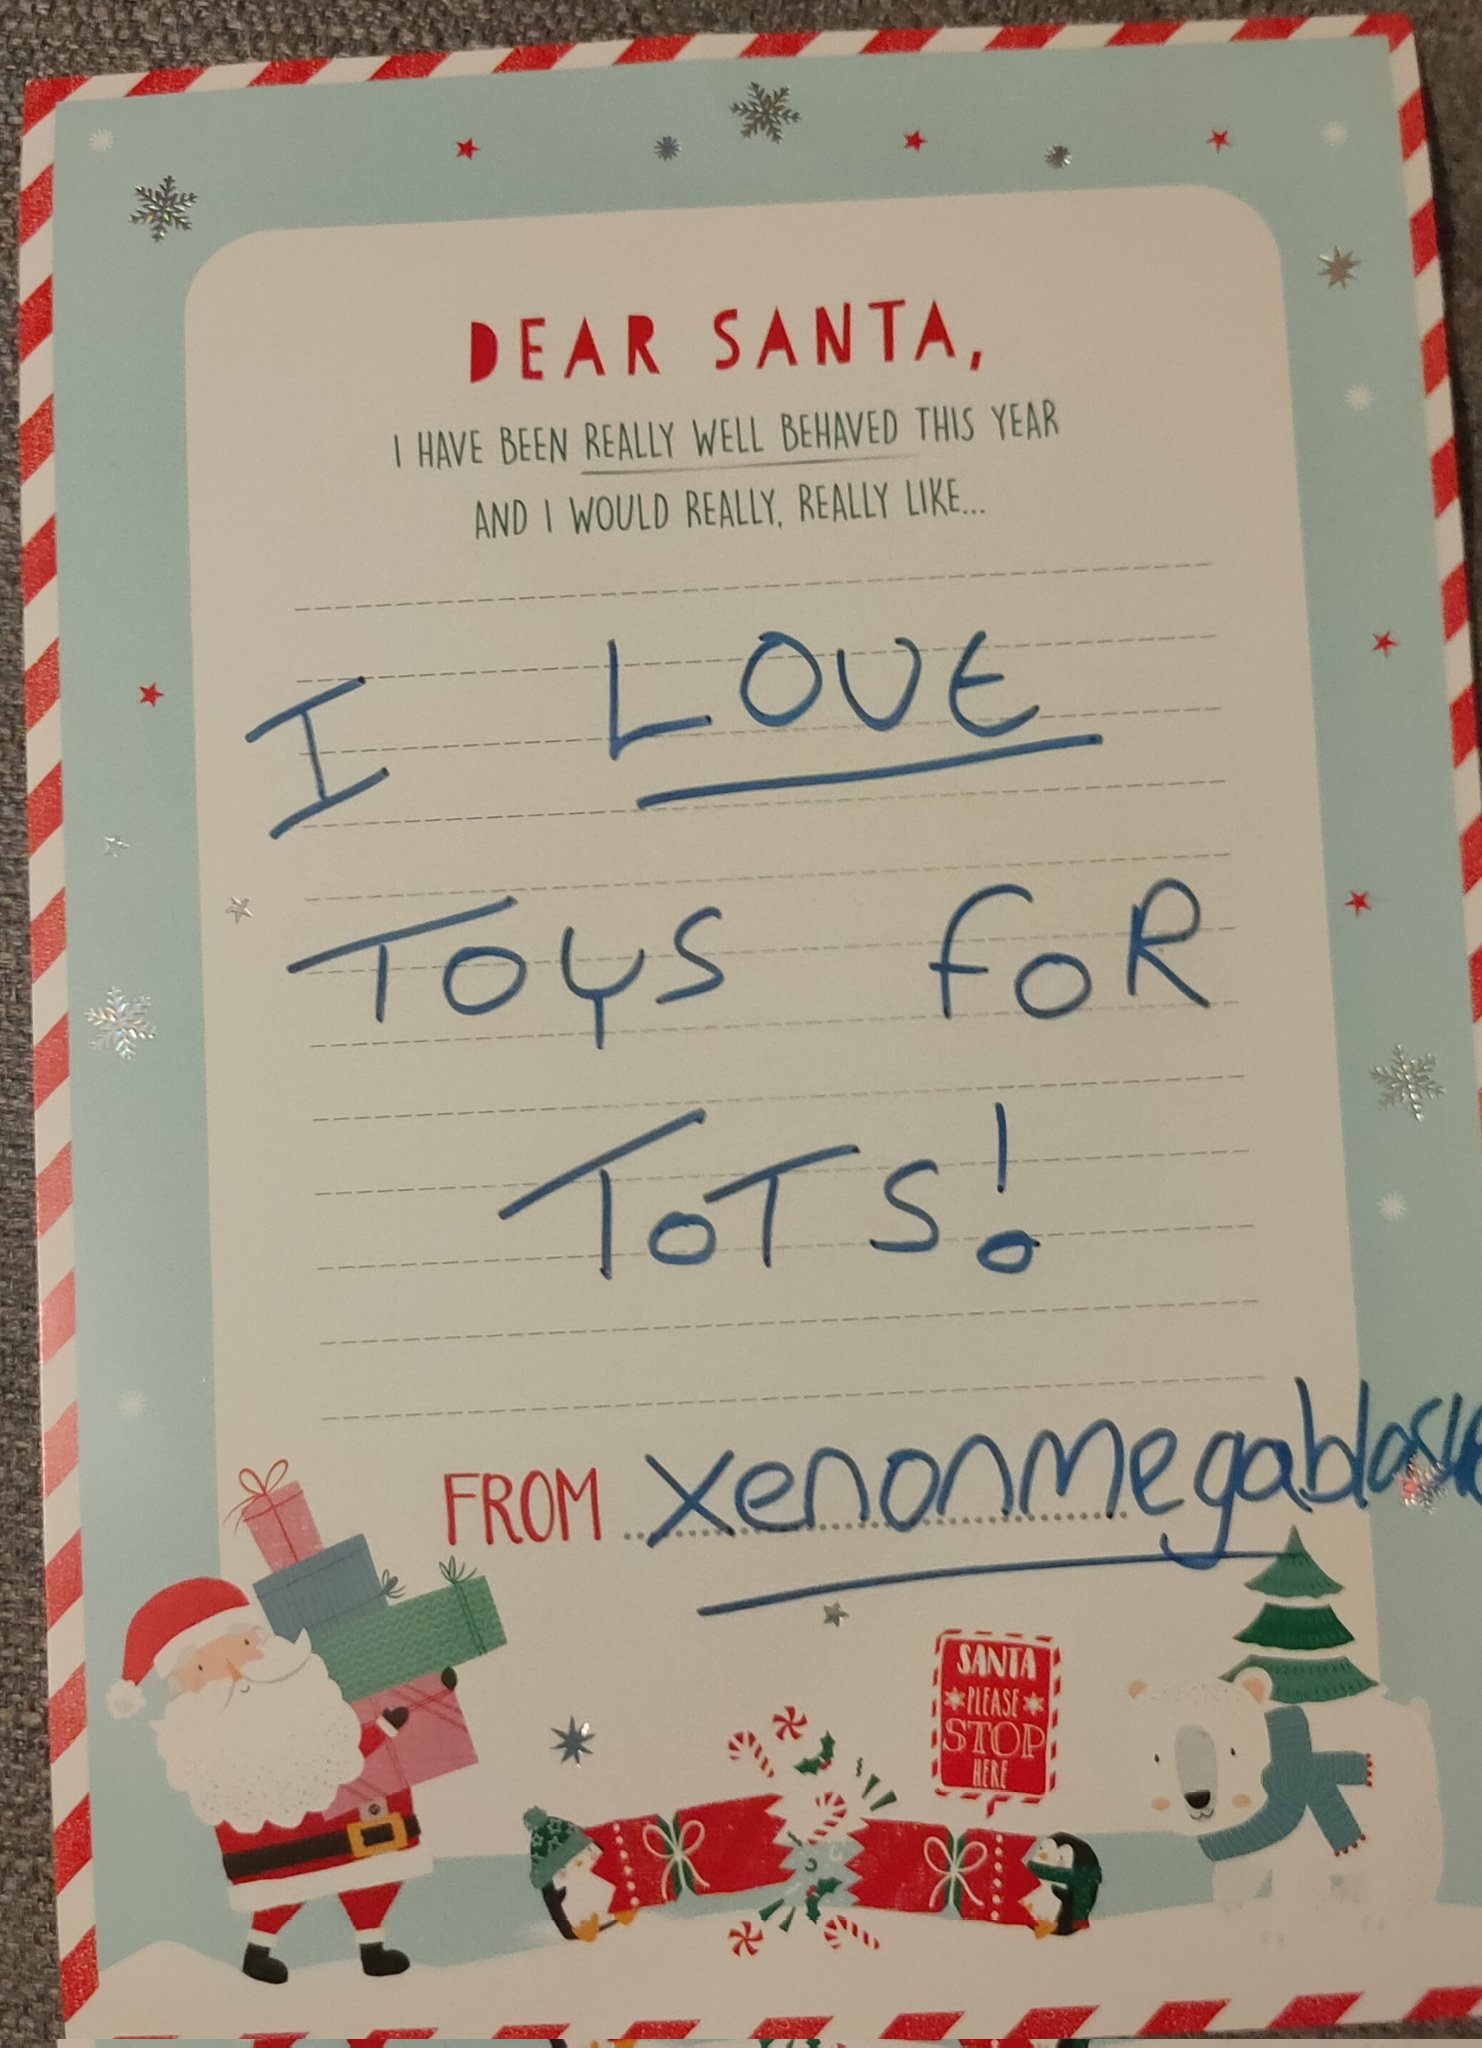 DEAR SANTA,
I HAVE BEEN REALLY WELL BEHAVED THIS YEAR
AND I WOULD REALLY, REALLY LIKE...
I LOVE
TOYS FOR
TOTS!
FROM
SANTA
PLEASE
STOP
HERE